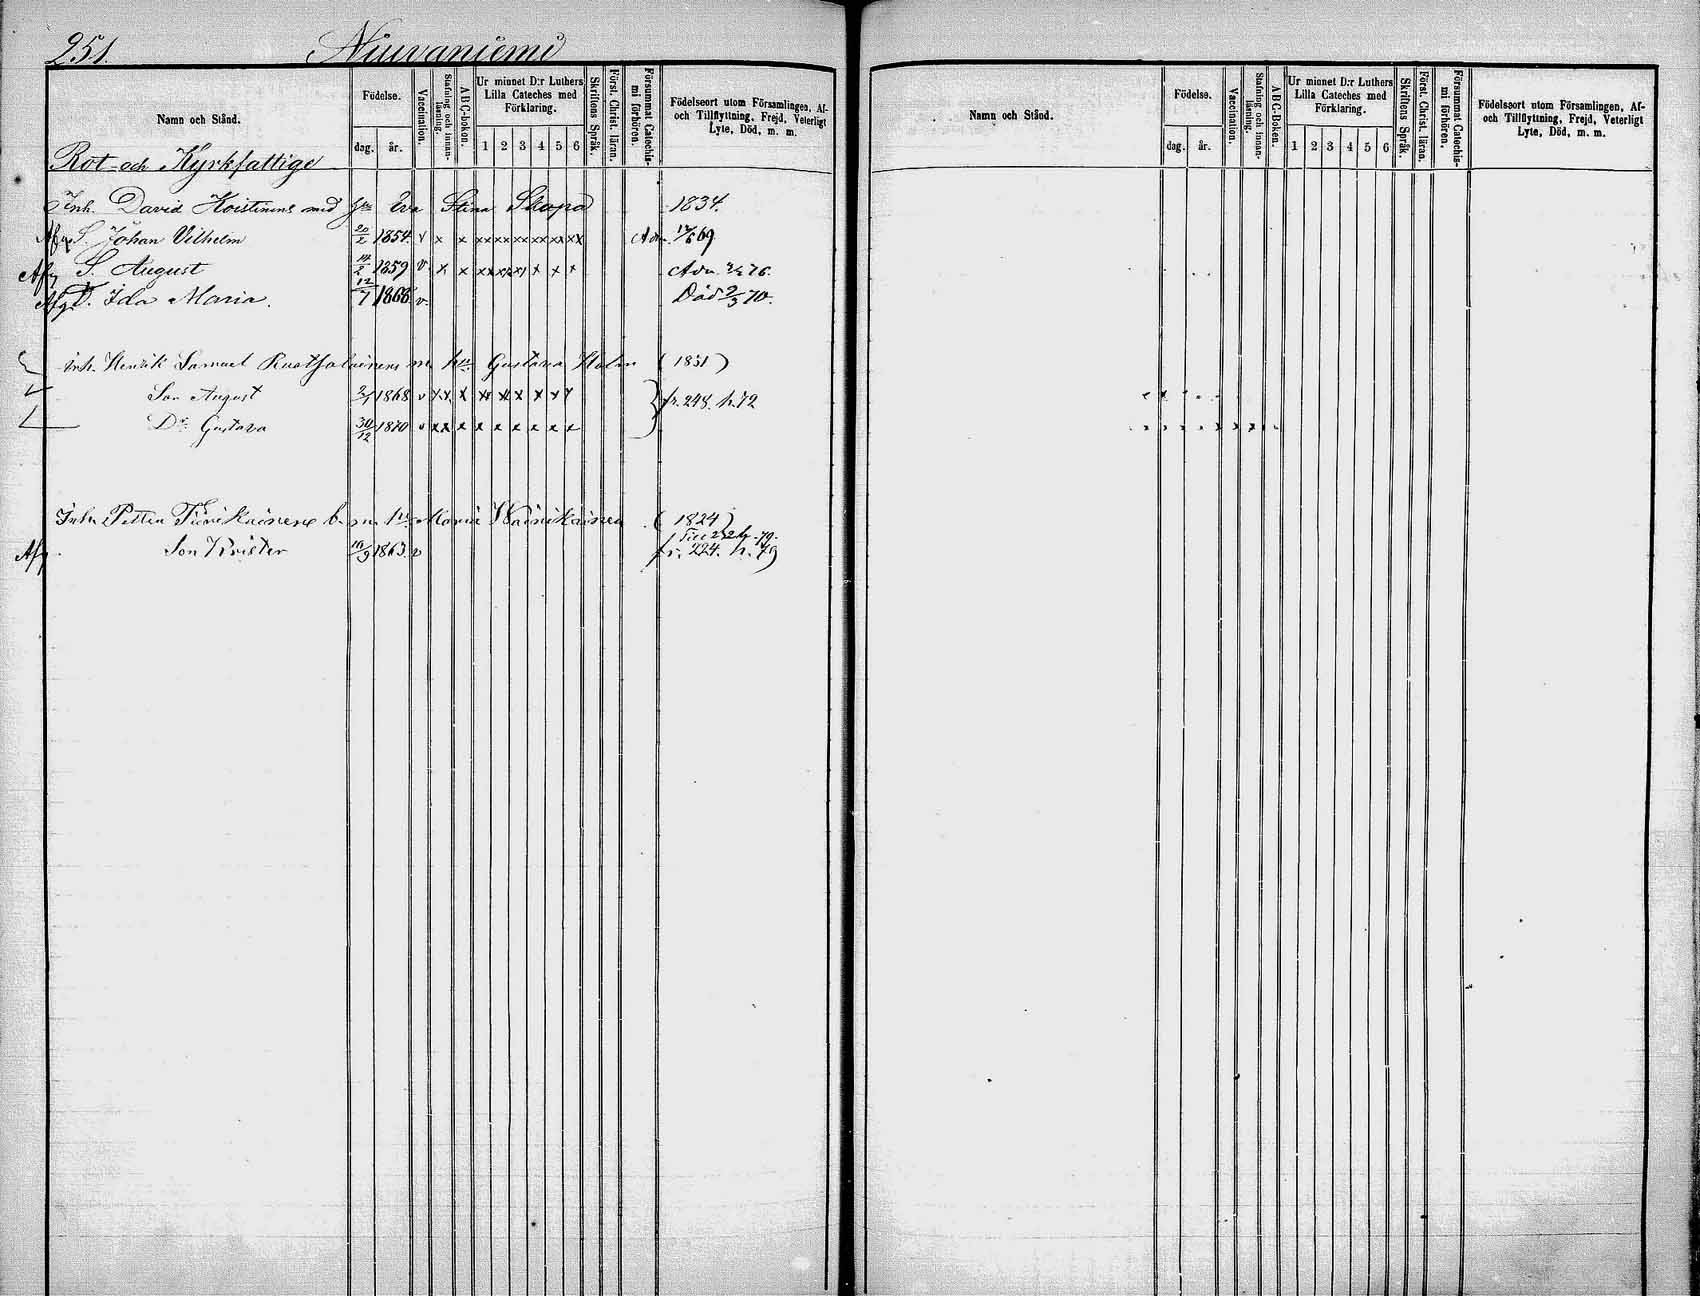 251. Niuvaniemi
Namn och Stånd.
Födelse.
dag. år.
Vaccination.
Stafning och innanläsning.
ABC-boken.
Ur minnet D:r Luthers
Lilla Cateches med
Förklaring.
1 2 3 4 5 6
Skriftens Språk.
Först. Christ. läran.
Försummat Catechismi förhören.
Födelseort utom Församlingen, Af-
och Tillflyttning, Frejd, Veterligt
Lyte, Död, m. m.
Rot- och Kyrkfattige
Inh. David Koistinens med hu Eva Stina Skopa 1834.
Afg S. Johan Vilhelm 20/2 1854. v x x xx xx xx xx xx xx Adm. 69
Afg S. August 14/2 1859 v x x xx xx xx x x x Adm. 76.
Afg D. Ida Maria. 12/7 1868 v Död 2/3 70.
inh. Henrik Samuel m. hu Gustava Holm (1831)
Son August 2/1 1868 v x x x xx xx x x x x } fr. 248. h. 72
Dr Gustava 30/12 1870 v x x x x x x x x x
Inh. Petter b. m. hu Maria Wainikainen (1824)
Afg. Son Krister 16/9 1863 v fr. 224. h. 79
Namn och Stånd.
Födelse.
dag. år.
Vaccination.
Stafning och innanläsning.
ABC-Boken.
Ur minnet D:r Luthers
Lilla Cateches med
Förklaring.
1 2 3 4 5 6
Skriftens Språk.
Först. Christ. läran.
Försummat Catechismi förhören.
Födelseort utom Församlingen, Af-
och Tillflyttning, Frejd, Veterligt
Lyte, Död, m. m.